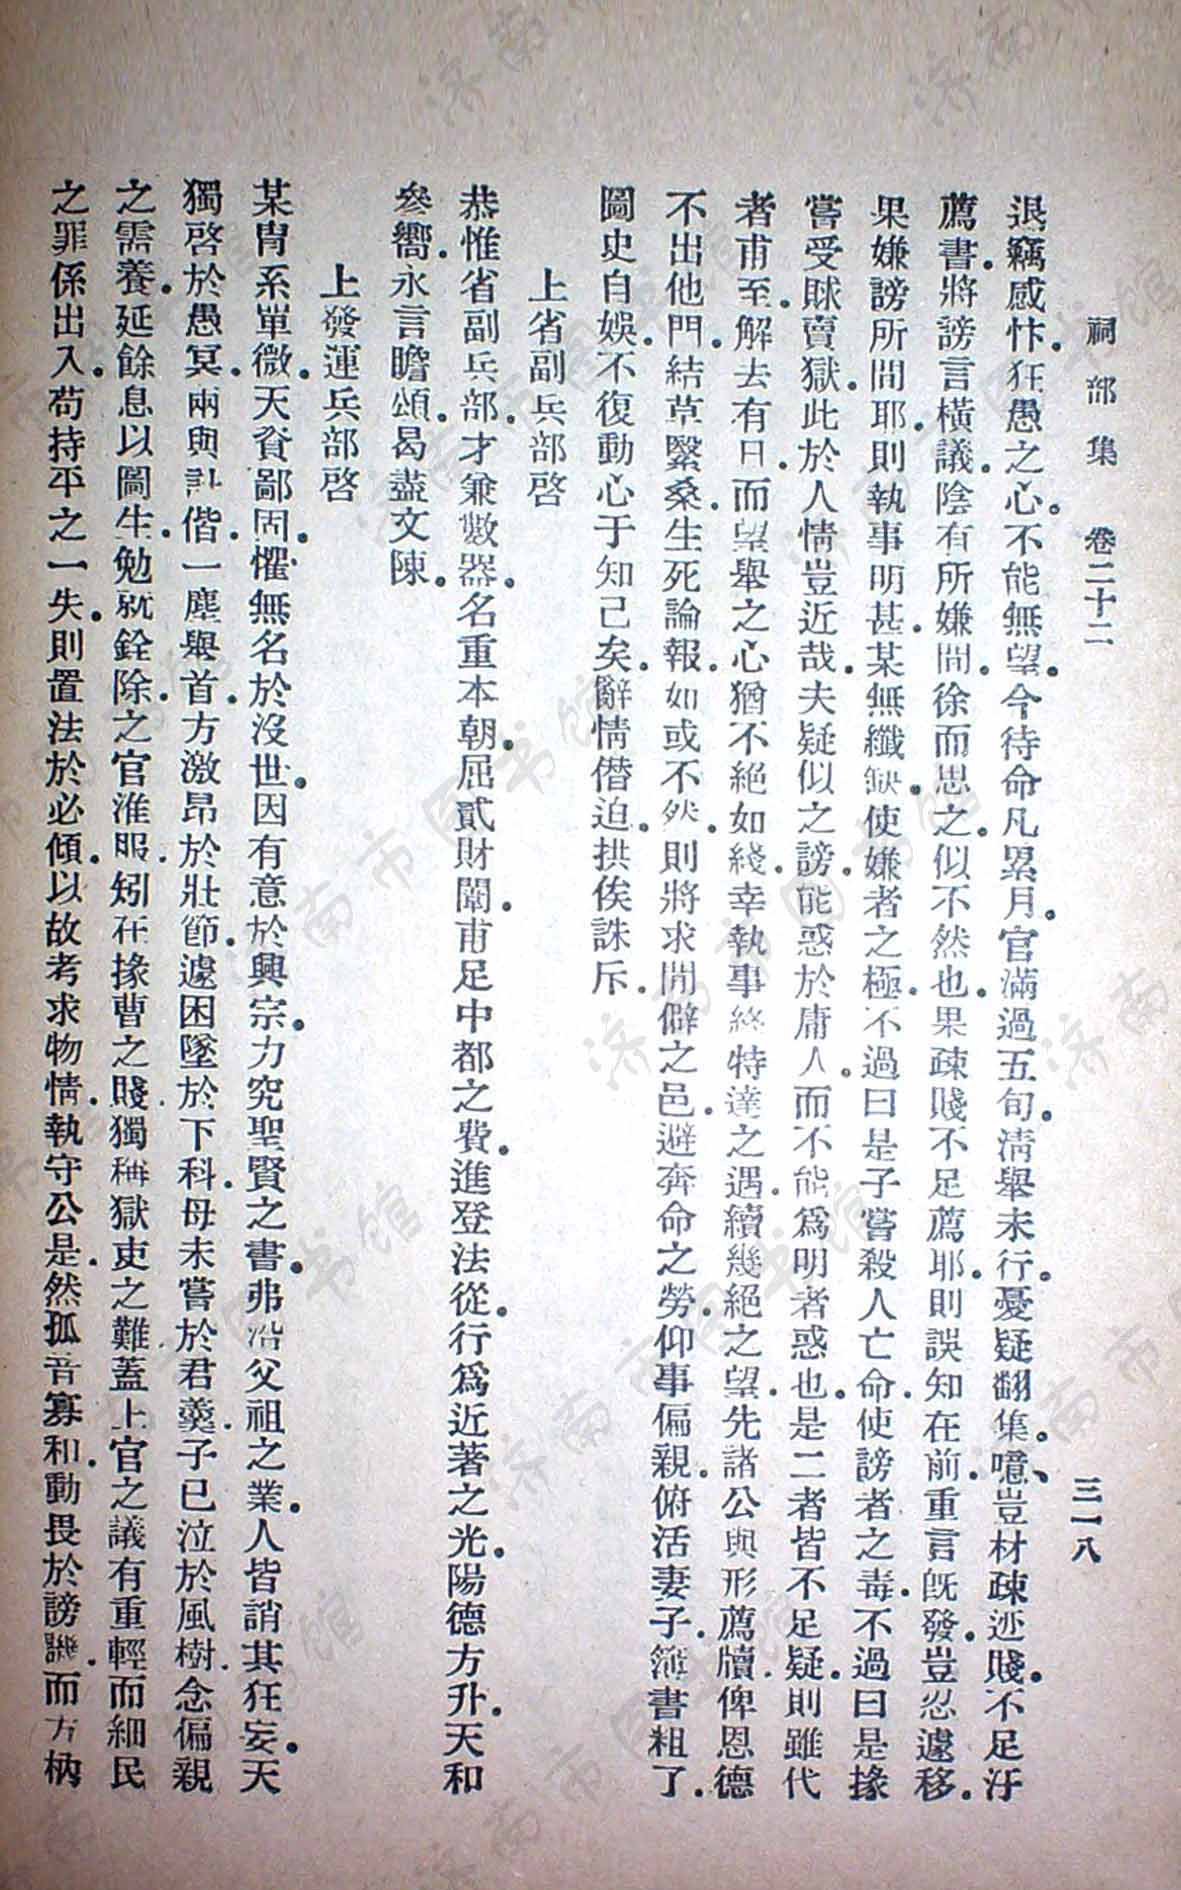 祠部集　卷二十二　三一八
退竊感忭．狂愚之心．不能無望．今待命凡累月．官滿過五旬．清舉未行．憂疑翻集．噫、豈材疎迹賤．不足汙
薦書．將謗言橫議．陰有所嫌間．徐而思之．似不然也．果疎賤不足薦耶．則誤知在前．重言旣發．豈忍遽移．
果嫌謗所間耶．則執事明甚．某無纖缺．使嫌者之極．不過曰是子嘗殺人亡命．使謗者之毒．不過曰是掾
嘗受賕賣獄．此於人情豈近哉．夫疑似之謗．能惑於庸人．而不能爲明者惑也．是二者皆不足疑．則雖代
者甫至．解去有日．而望舉之心猶不絕如綫．幸執事終特達之遇．續幾絕之望．先諸公與形薦牘．俾恩德
不出他門．結草繄桑．生死論報．如或不然．則將求閒僻之邑．避奔命之勞．仰事偏親．俯活妻子．簿書粗了．
圖史自娛．不復動心于知己矣．辭情僭迫．拱俟誅斥．
上省副兵部啓
恭惟省副兵部．才兼數器．名重本朝．屈貳財闈．甫足中都之費．進登法從．行爲近著之光．陽德方升．天和
參嚮．永言瞻頌．曷盡文陳．
上發運兵部啓
某胄系單微．天資鄙固．懼無名於沒世．因有意於興宗．力究聖賢之書．弗沿父祖之業．人皆誚其狂妄．天
獨啓於愚冥．兩與計偕．一塵舉首．方激昂於壯節．遽困墜於下科．母未嘗於君羹．子已泣於風樹．念偏親
之需養．延餘息以圖生．勉就銓除．之官淮服．矧在掾曹之賤．獨稱獄吏之難．蓋上官之議有重輕．而細民
之罪係出入．苟持平之一失．則置法於必傾．以故考求物情．執守公是．然孤音寡和．動畏於謗譏．而方枘